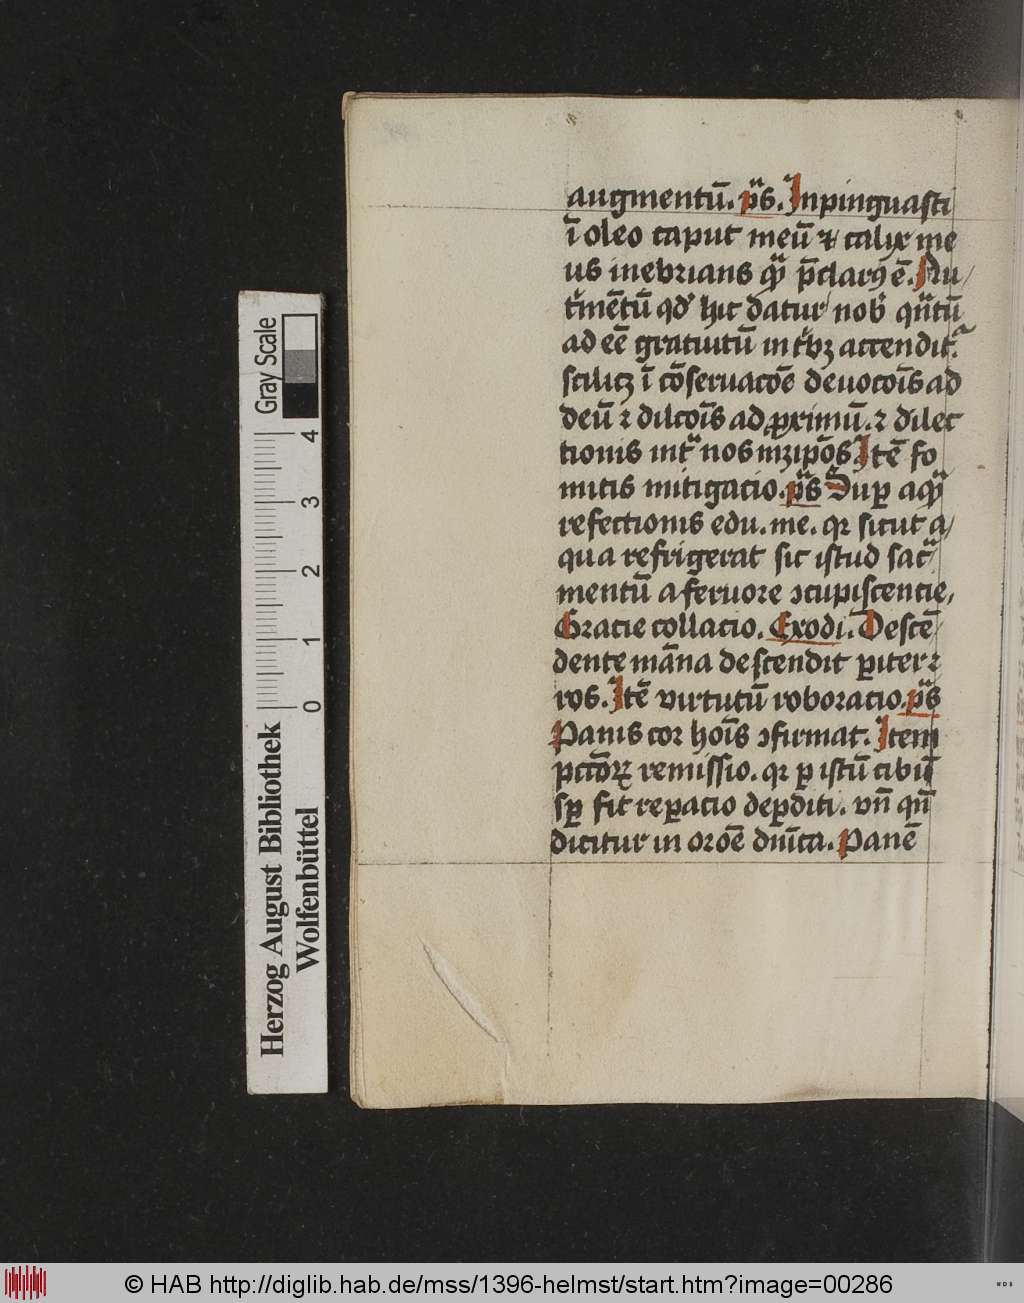 augmentū. p̄s. Inpinguasti
ī oleo caput meū ⁊ calix me
us inebrians qͣ p̄clarꝯ ē. Au
gͫmētū qđ hic datur nob̾ qn̄tū
ad eē gratuitū in tͥbꝫ accendit᷑.
scilicꝫ ī cōseruacōe deuocōis ad
deū ⁊ dilcōis ad ꝓximū. ⁊ dilec
tionis intͣ nosmꝫipōs. Itē fo
mitis mitigacio. p̄s Suꝑ aqͣ
refectionis edu. me. qꝛ sicut a
qua refrigerat sic istud sacͣ
mentū a feruore ↄcupiscencie,
Gracie collacio. Exodi. Descē
dente māna descendit ꝑiter ⁊
ros. Itē virtutū roboracio. p̄s
Panis cor hoīs ↄfirmat. Item
pccōꝝ remissio. qꝛ ꝑ istū cibū
sꝑ fit reꝑacio deꝑditi. vn̄ qn̄
dicitur in orōe dnīca. Panē
Herzog August Bibliothek
Wolfenbüttel
0 1 2 3 4
Gray Scale
© HAB http://diglib.hab.de/mss/1396-helmst/start.htm?image=00286